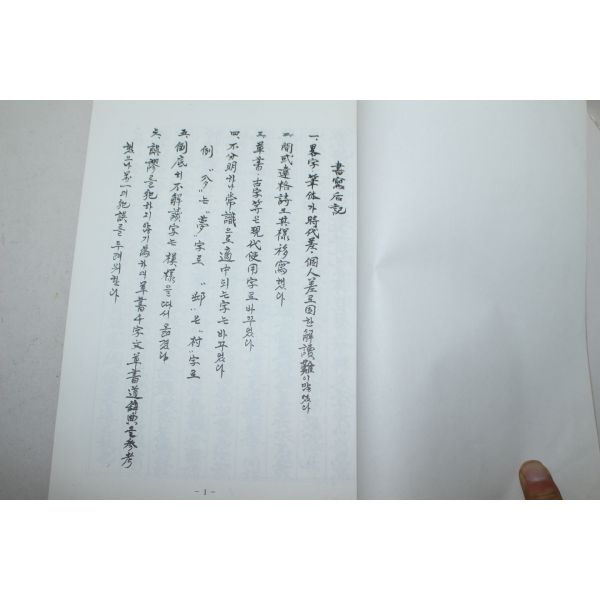 書寫后記
一. 畧字 筆体가 時代差·個人差로 因한 解讀難이 많았다
二. 間或 違格詩도 其樣 移寫했다
三. 草書·古字等은 現代使用字로 바꾸었다
四. 不分明하나 常識으로 適中되는 字는 바꾸었다
例 는 "夢"字로 "邨"은 "村"字로
五. 倒底히 不解讀字는 模樣을 따서 옮겼다
六. 誤謬를 犯하지 않기 爲하여 草書千字文 草書道辭典을 參考
했으나 萬一의 犯誤를 두려워한다
- 1 -